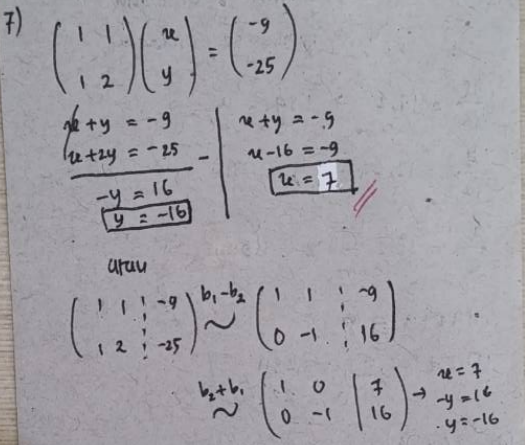 7) ( 1 1 ; 1 2 ) ( x ; y ) = ( -9 ; -25 )
x + y = -9
x + 2y = -25 -
-y = 16
y = -16
x + y = -9
x - 16 = -9
x = 7
atau
( 1 1 ¦ -9 ; 1 2 ¦ -25 ) b₁-b₂ ~ ( 1 1 ¦ -9 ; 0 -1 ¦ 16 )
b₂+b₁ ~ ( 1 0 | 7 ; 0 -1 | 16 ) → x = 7
-y = 16
y = -16